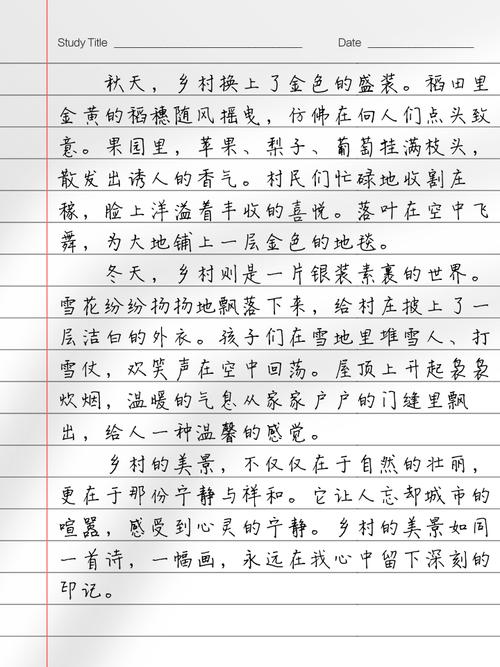 Study Title Date
秋天，乡村换上了金色的盛装。稻田里
金黄的稻穗随风摇曳，仿佛在向人们点头致
意。果园里，苹果、梨子、葡萄挂满枝头，
散发出诱人的香气。村民们忙碌地收割庄
稼，脸上洋溢着丰收的喜悦。落叶在空中飞
舞，为大地铺上一层金色的地毯。
冬天，乡村则是一片银装素裹的世界。
雪花纷纷扬扬地飘落下来，给村庄披上了一
层洁白的外衣。孩子们在雪地里堆雪人、打
雪仗，欢笑声在空中回荡。屋顶上升起袅袅
炊烟，温暖的气息从家家户户的门缝里飘
出，给人一种温馨的感觉。
乡村的美景，不仅仅在于自然的壮丽，
更在于那份宁静与祥和。它让人忘却城市的
喧嚣，感受到心灵的宁静。乡村的美景如同
一首诗，一幅画，永远在我心中留下深刻的
印记。